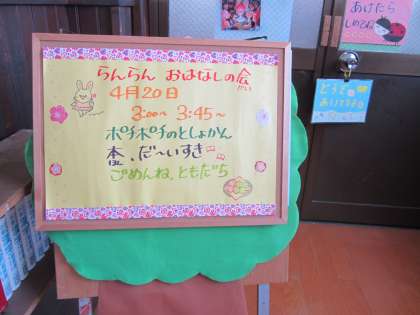 らんらん おはなしの会
かい
4月20日
3:00~ 3:45~
ポチポチのとしょかん
本、だ～いすき
ごめんね、ともだち
あけたら
しめてね
どうぞ